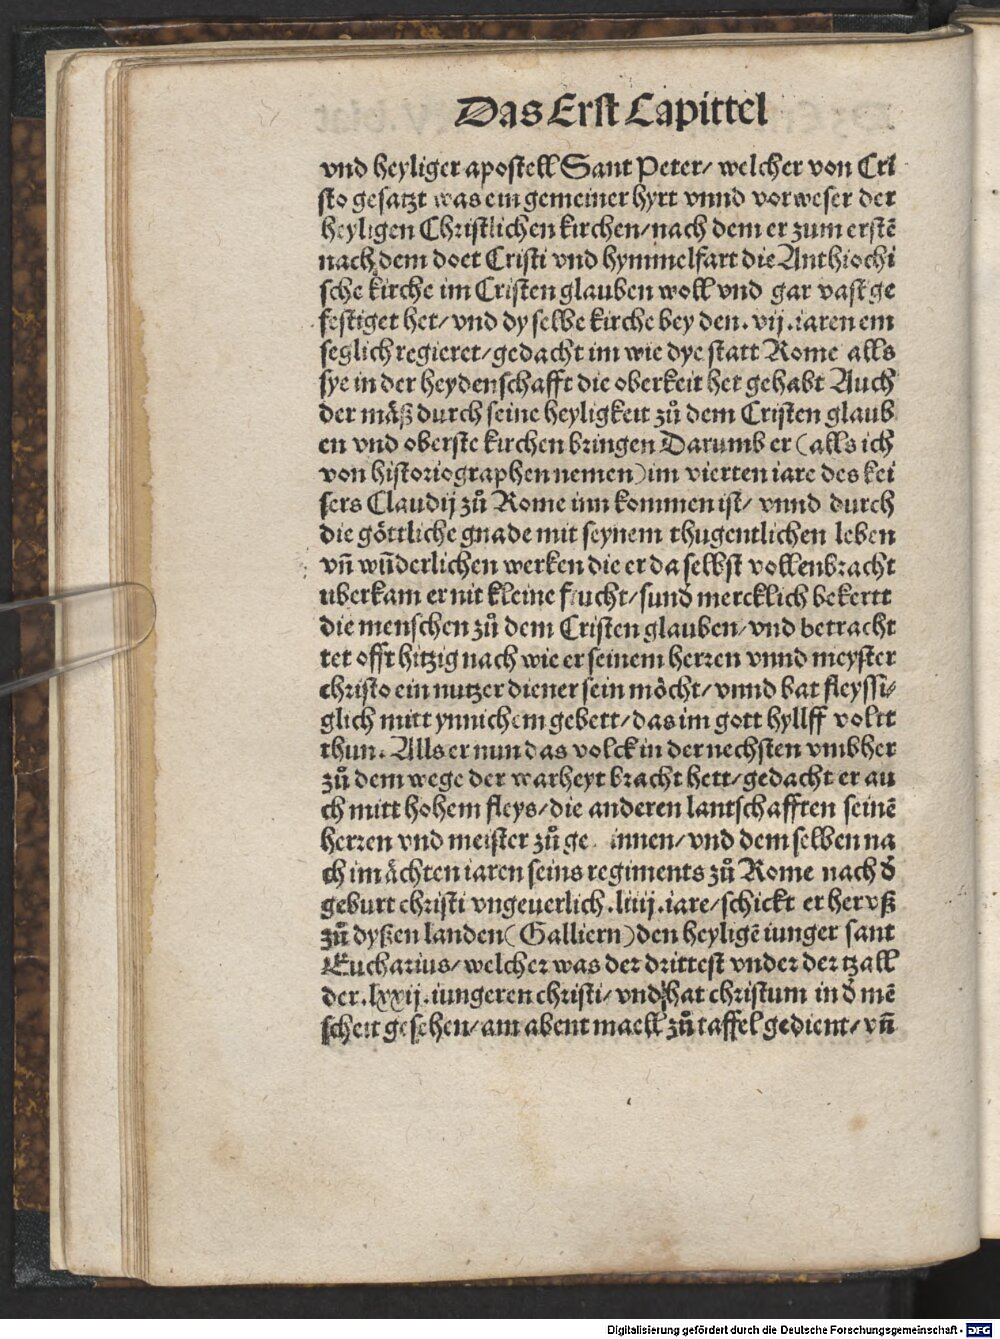 Das Erst Capittel
vnd heyliger apostell Sant Peter/ welcher von Cri
sto gesatzt was ein gemeiner hyrt vnnd vorweser der
heyligen Christlichen kirchen/ nach dem er zum erstē
nach dem doet Cristi vnd hymmelfart die Anthiochi
sche kirche im Cristen glauben woll vnd gar vast ge
festiget het/ vnd dy selbe kirche bey den .vij. iaren em
seglich regieret/ gedacht im wie dye statt Rome alls
sye in der heydenschafft die oberkeit het gehabt Auch
der mäß durch seine heyligkeit zů dem Cristen glaub
en vnd oberste kirchen bringen Darumb er (alls ich
von historiographen nemen) im vierten iare des kei
sers Claudij zů Rome inn kommen ist/ vnnd durch
die göttliche gnade mit seynem thugentlichen leben
vñ wūderlichen werken die er da selbst vollenbracht
uberkam er nit kleine frucht/ sund mercklich bekertt
die menschen zů dem Cristen glauben/ vnd betracht
tet offt hitzig nach wie er seinem herren vnnd meyster
christo ein nutzer diener sein möcht/ vnnd bat fleyssi/
glich mitt ynnichem gebett/ das im gott hyllff voltt
thun. Alls er nun das volck in der nechsten vmbher
zů dem wege der warheyt bracht hett/ gedacht er au
ch mitt hohem fleys/ die anderen lantschafften seinē
herren vnd meister zů ge innen/ vnd dem selben na
ch im ächten iaren seins regiments zů Rome nach d̄
geburt christi vngeuerlich .liiij. iare/ schickt er her vß
zů dyßen landen (Galliern) den heyligē iunger sant
Eucharius/ welcher was der drittest vnder der tzall
der .lxxij. iungeren christi/ vnd hat christum in d̄ mē
scheit gesehen/ am abent maell zů taffel gedient/ vñ
Digitalisierung gefördert durch die Deutsche Forschungsgemeinschaft - DFG